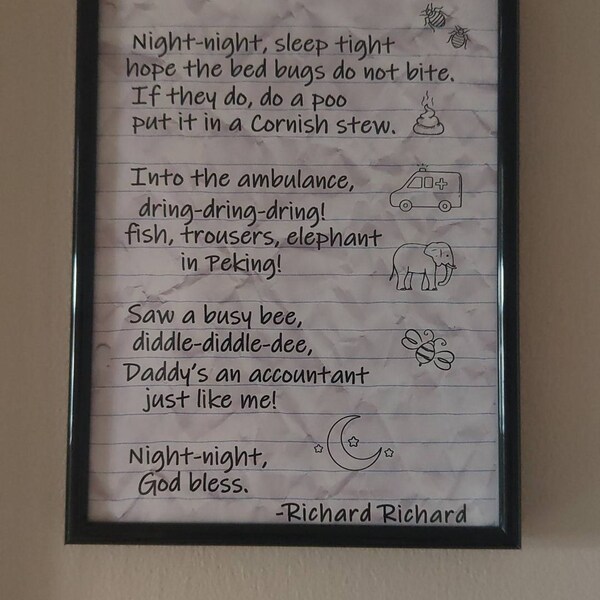 Night-night, sleep tight
hope the bed bugs do not bite.
If they do, do a poo
put it in a Cornish stew.
Into the ambulance,
dring-dring-dring!
fish, trousers, elephant
in Peking!
Saw a busy bee,
diddle-diddle-dee,
Daddy's an accountant
just like me!
Night-night,
God bless.
-Richard Richard